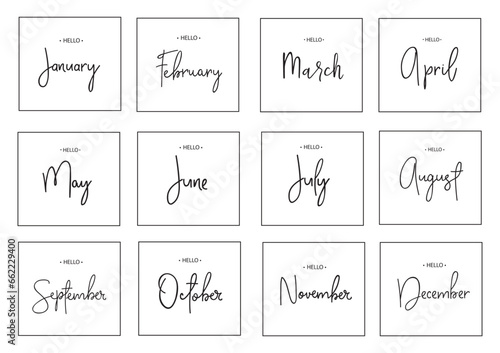 • HELLO •
January
• HELLO •
February
• HELLO •
March
• HELLO •
April
• HELLO •
May
• HELLO •
June
• HELLO •
July
• HELLO •
August
• HELLO •
September
• HELLO •
October
• HELLO •
November
• HELLO •
December
Adobe Stock | #662229400